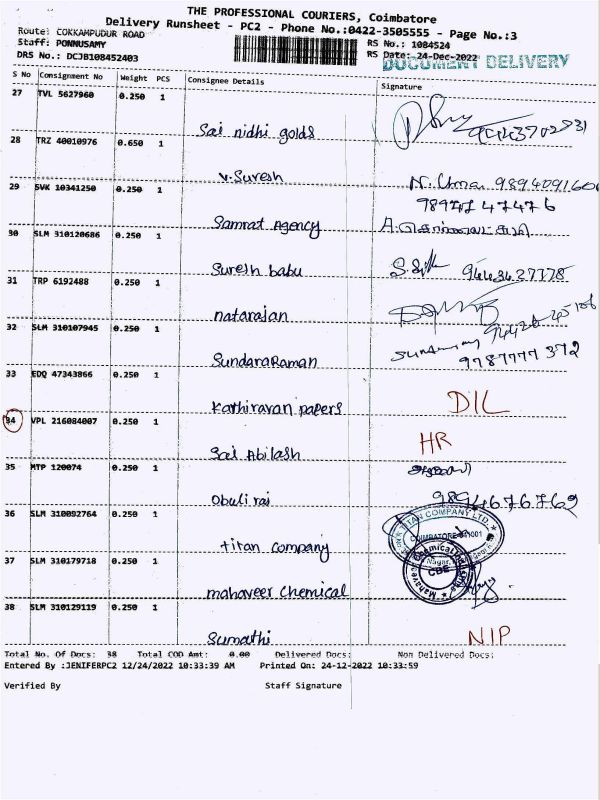 THE PROFESSIONAL COURIERS, Coimbatore
Delivery Runsheet - PC2 - Phone No.:0422-3505555 - Page No.:3
Route: COKKAMPUDUR ROAD
Staff: PONNUSAMY
RS No.: 1084524
DRS No.: DCJB108452403
RS Date: 24-Dec-2022
DOCUMENT DELIVERY
S No Consignment No Weight PCS Consignee Details Signature
27 TVL 5627960 0.250 1
Sai nidhi golds
28 TRZ 40010976 0.650 1
V.Suresh N. Uma 9894091600
29 SVK 10341250 0.250 1
Samrat Agency
30 SLM 310120686 0.250 1
Suresh babu 9443427178
31 TRP 6192488 0.250 1
natarajan
32 SLM 310107945 0.250 1
SundaraRaman 9787777372
33 EDQ 47343866 0.250 1
Kathiravan papers DIL
34 VPL 216084007 0.250 1
Sai Abilash HR
35 MTP 120074 0.250 1
Obuli raj 9894676762
36 SLM 310092764 0.250 1
titan company
TITAN COMPANY LTD.
COIMBATORE-641001
37 SLM 310179718 0.250 1
mahaveer chemical
Nagar,
CBE
38 SLM 310129119 0.250 1
Sumathi NIP
Total No. Of Docs: 38 Total COD Amt: 0.00 Delivered Docs: Non Delivered Docs:
Entered By :JENIFERPC2 12/24/2022 10:33:39 AM Printed On: 24-12-2022 10:33:59
Verified By Staff Signature